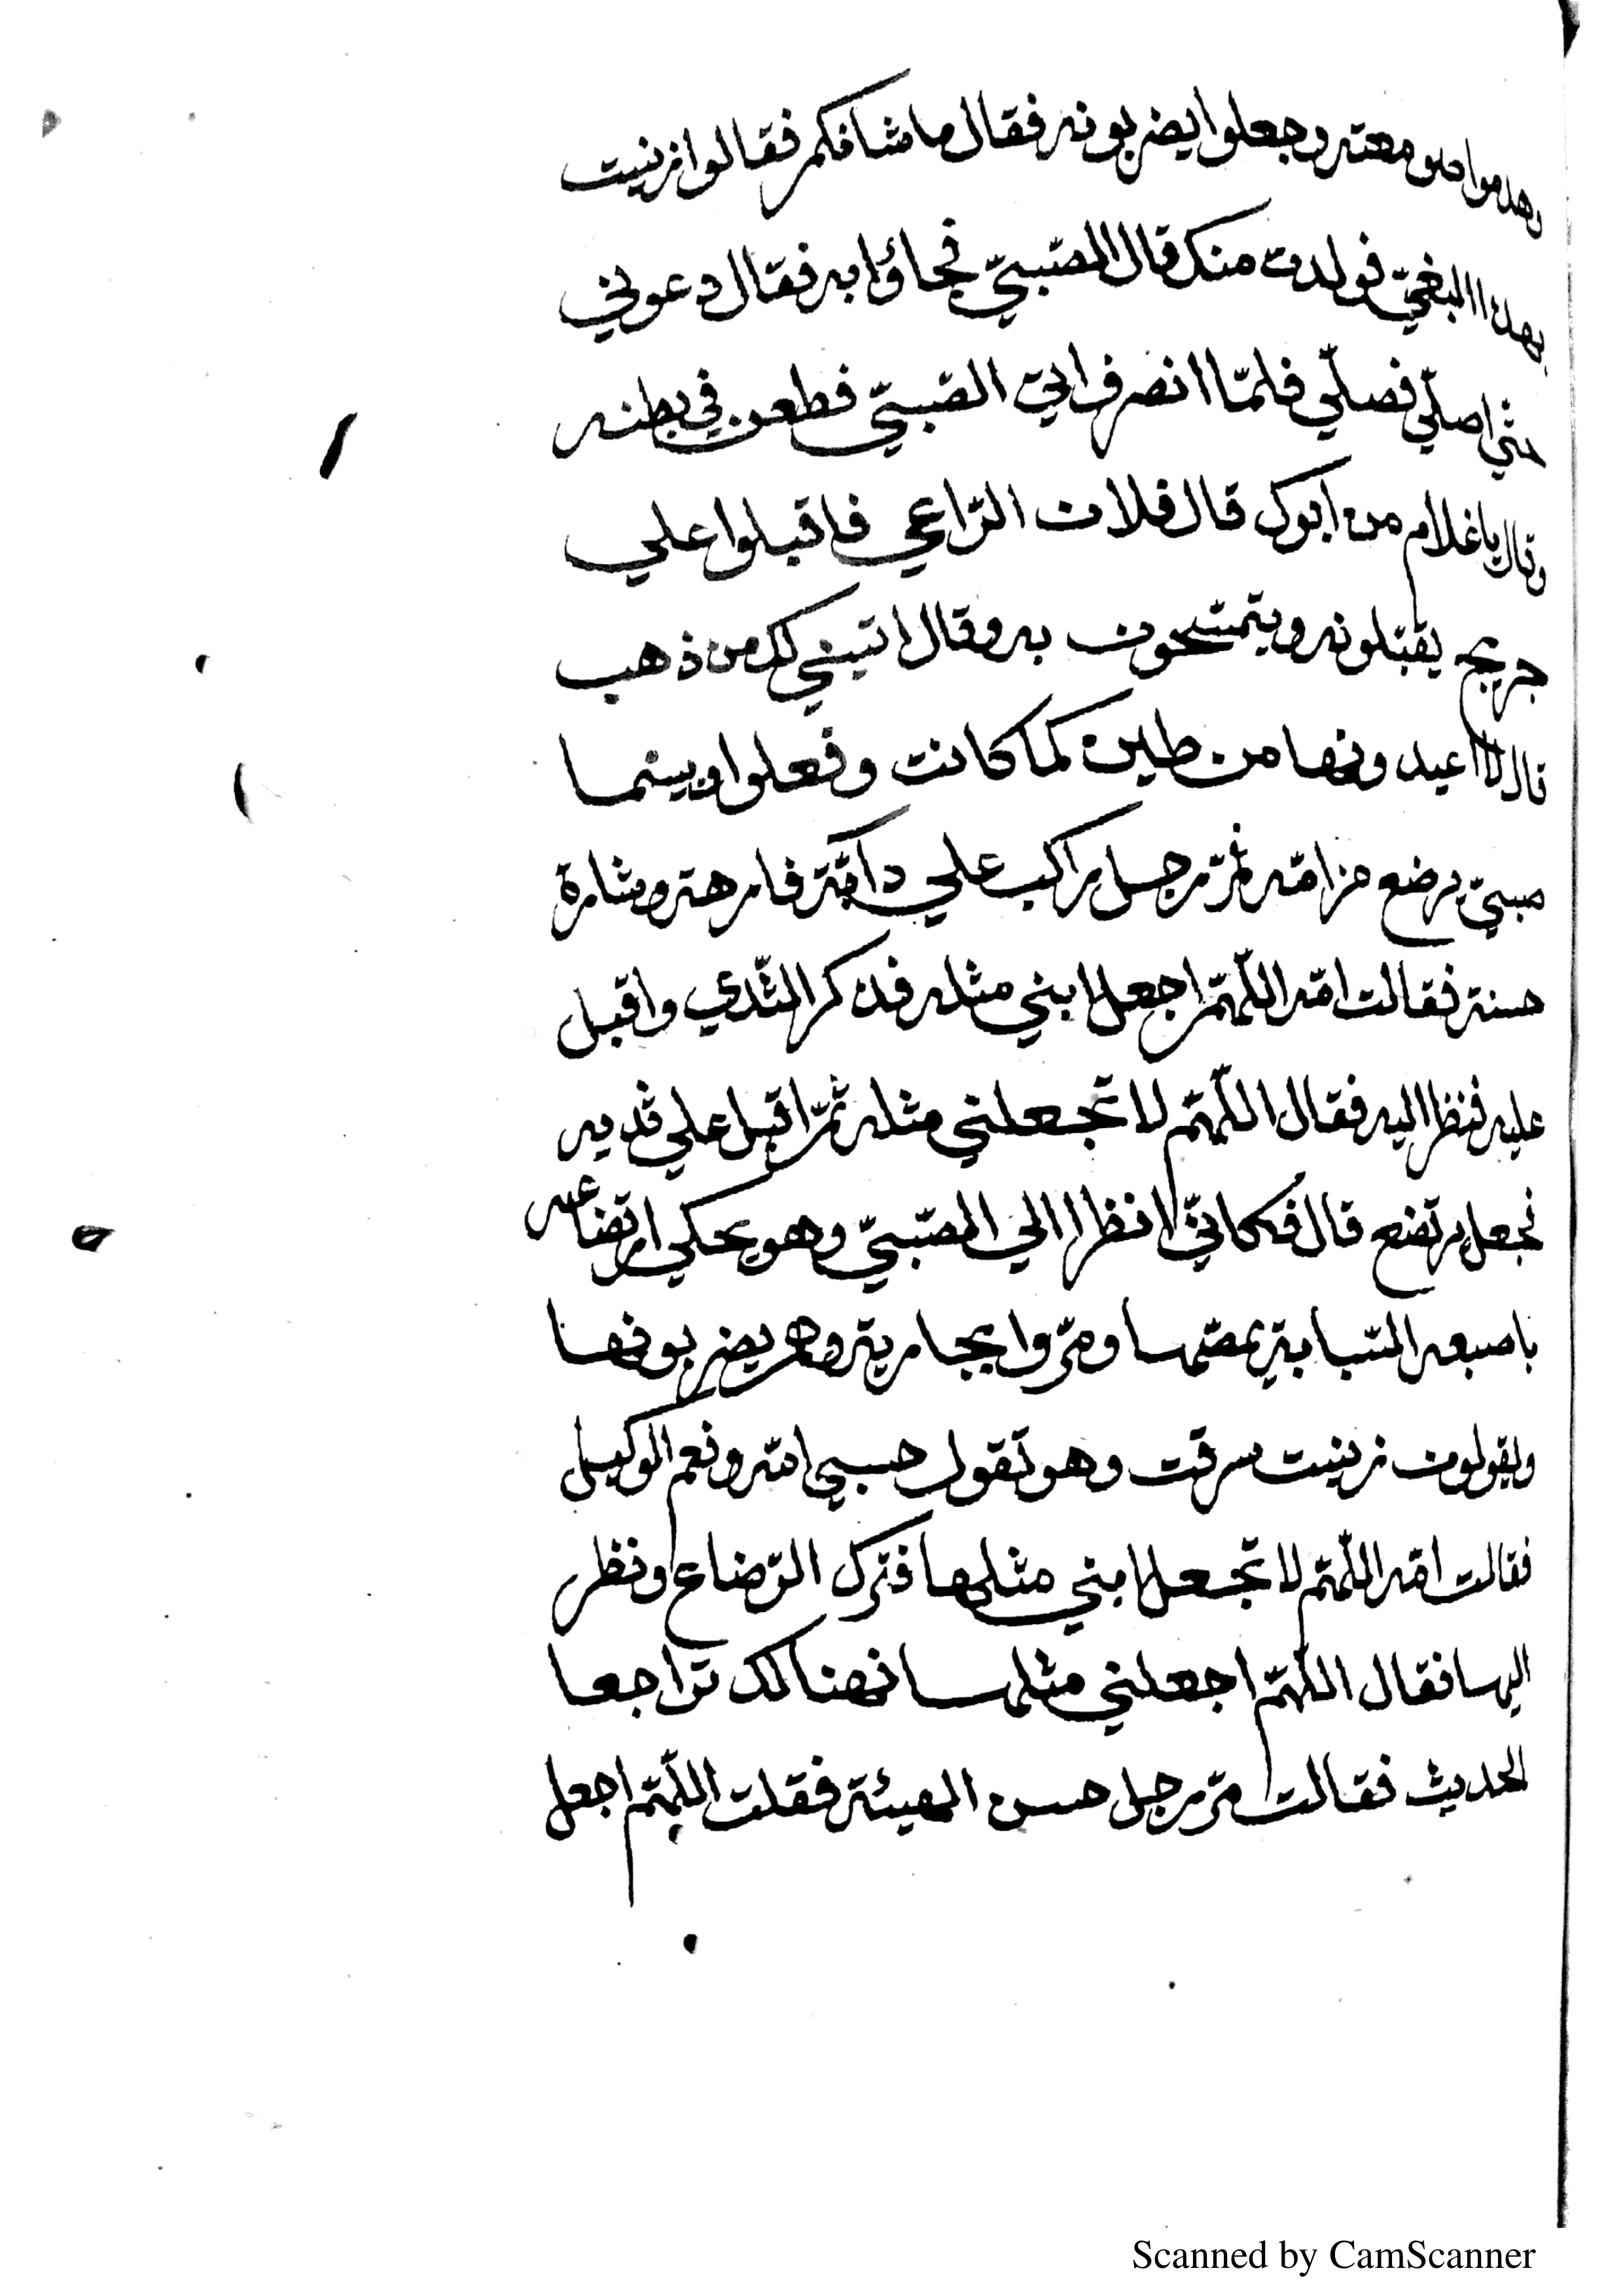 وهدموا صومعته وجعلوا يضربونه فقال ما شانكم فقالوا زنيت
بهذا البغيّ فولدت منك قال الصّبيّ فجاؤا به فقال دعوني
حتّي اصلّي فصلّي فلمّا انصرف اتي الصّبيّ فطعن في بطنه
وقال يا غلام من ابوك قال فلان الرّاعي فاقبلوا علي
جريج يقبّلونه ويتمسّحون به وقال نبني لك من ذهب
قال لا اعيدونها من طين كما كانت وفعلوا وبينما
صبيّ يرضع من امّه ثمّ رجل راكب علي دابّة فارهة وشارة
حسنة فقالت امّه اللّهمّ اجعل ابني مثله فذكر الثّدي واقبل
عليه فنظر اليه فقال اللّهمّ لا تجعلني مثله ثمّ اقبل علي ثديه
فجعل يرتضع قال فكانّي انظر الي الصّبيّ وهو يحكي ارتضاعه
باصبعه السّبابة يمصّها ومرّوا بجارية وهم يضربونها
ويقولون زنيت سرقت وهو تقول حسبي الله ونعم الوكيل
فقالت امّه اللّهمّ لا تجعل ابني مثلها فترك الرّضاع ونظر
اليها فقال اللّهمّ اجعلني مثلها فهنالك تراجعا
الحديث فقالت مرّ رجل حسن الهيئة فقلت اللّهمّ اجعل
Scanned by CamScanner